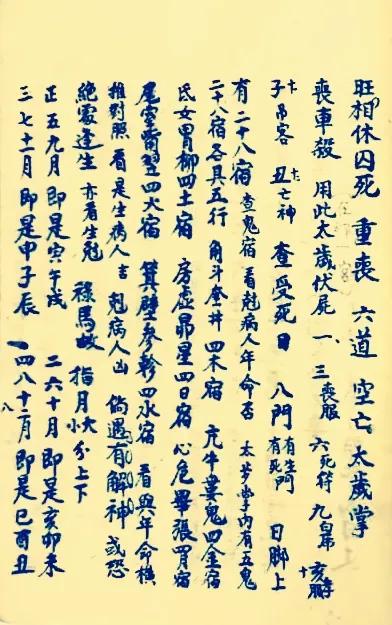 旺相休囚死 重喪 六道 空亡 太歲掌
喪車殺 用此太歲伏屍 一、三喪服 六死符 九白吊 十亥
子吊客 丑亡神 查受死日 八門 有生門 有死門 日脚上
有二十八宿 查鬼宿 看尅病人年命否 太歲掌內有五鬼
二十八宿各具五行 角斗奎井四木宿 亢牛婁鬼四金宿
氐女胃柳四土宿 房虛昴星四日宿 心危畢張四月宿
尾室觜翌四火宿 箕壁參軫四水宿 看與年命橫
推對照 看是生病人吉 尅病人凶 倘遇有解神 或恐
絕處逢生 亦看生尅 祿馬 指月大小 分上下
正五九月 即是寅午戌 二六十月 即是亥卯未
三七十一月 即是申子辰 四八十二月 即是巳酉丑